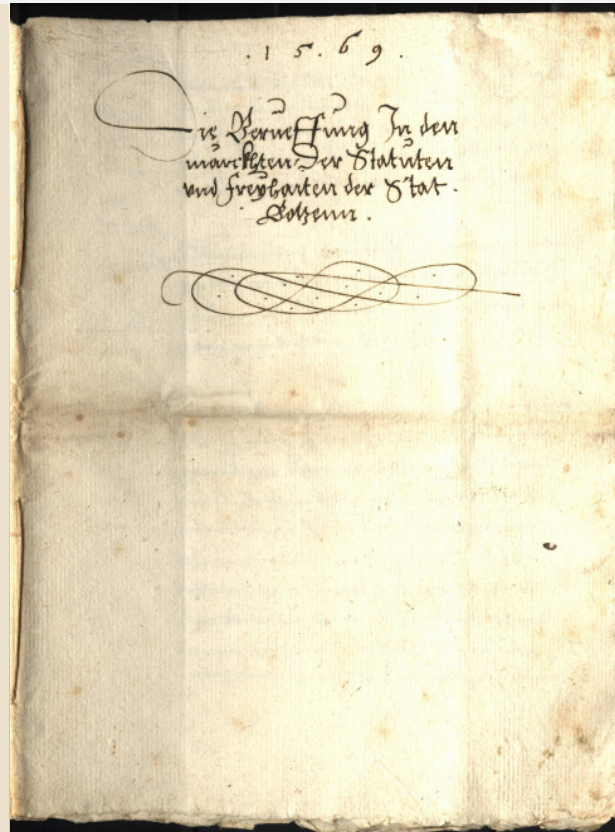 . 1 5 . 6 9 .
Die Berueffung In den
märckhten Der Statuten
vnd freyhaiten der Stat .
Botzenn .